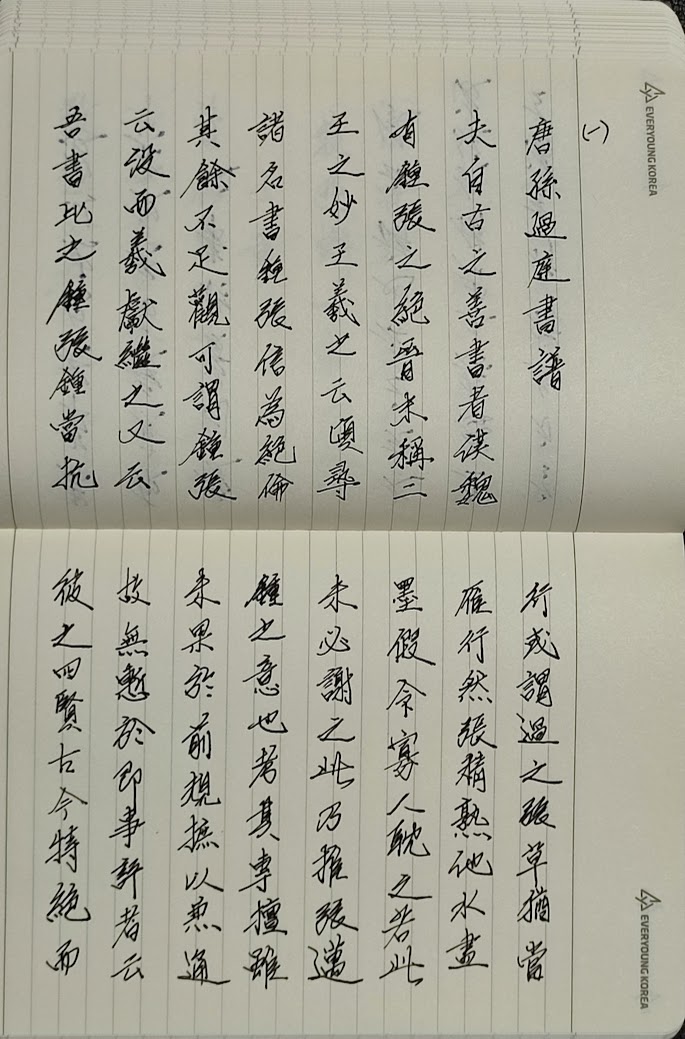 (一)
唐孫過庭書譜
夫自古之善書者漢魏
有鍾張之絕晉末稱二
王之妙王羲之云頃尋
諸名書鍾張信為絕倫
其餘不足觀可謂鍾張
云沒而羲獻繼之又云
吾書比之鍾張鍾當抗
行或謂過之張草猶當
雁行然張精熟池水盡
墨假令寡人耽之若此
未必謝之此乃推張邁
鍾之意也考其專擅雖
未果於前規摭以兼通
故無慙於即事評者云
彼之四賢古今特絕而
EVERYOUNG KOREA
EVERYOUNG KOREA